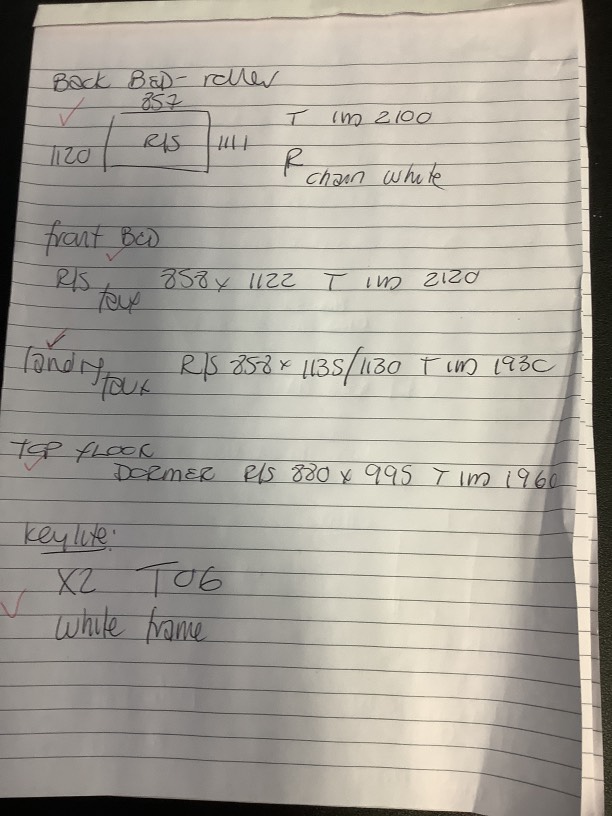 Back BED - roller
857
1120 R/S 1111 T IM 2100
R chain white
front BED
R/S faux 858 x 1122 T IM 2120
landry faux R/S 858 x 1135/1130 T IM 1930
TOP FLOOR
DORMER R/S 880 x 995 T IM 1960
Keylite:
X2 T06
white frame